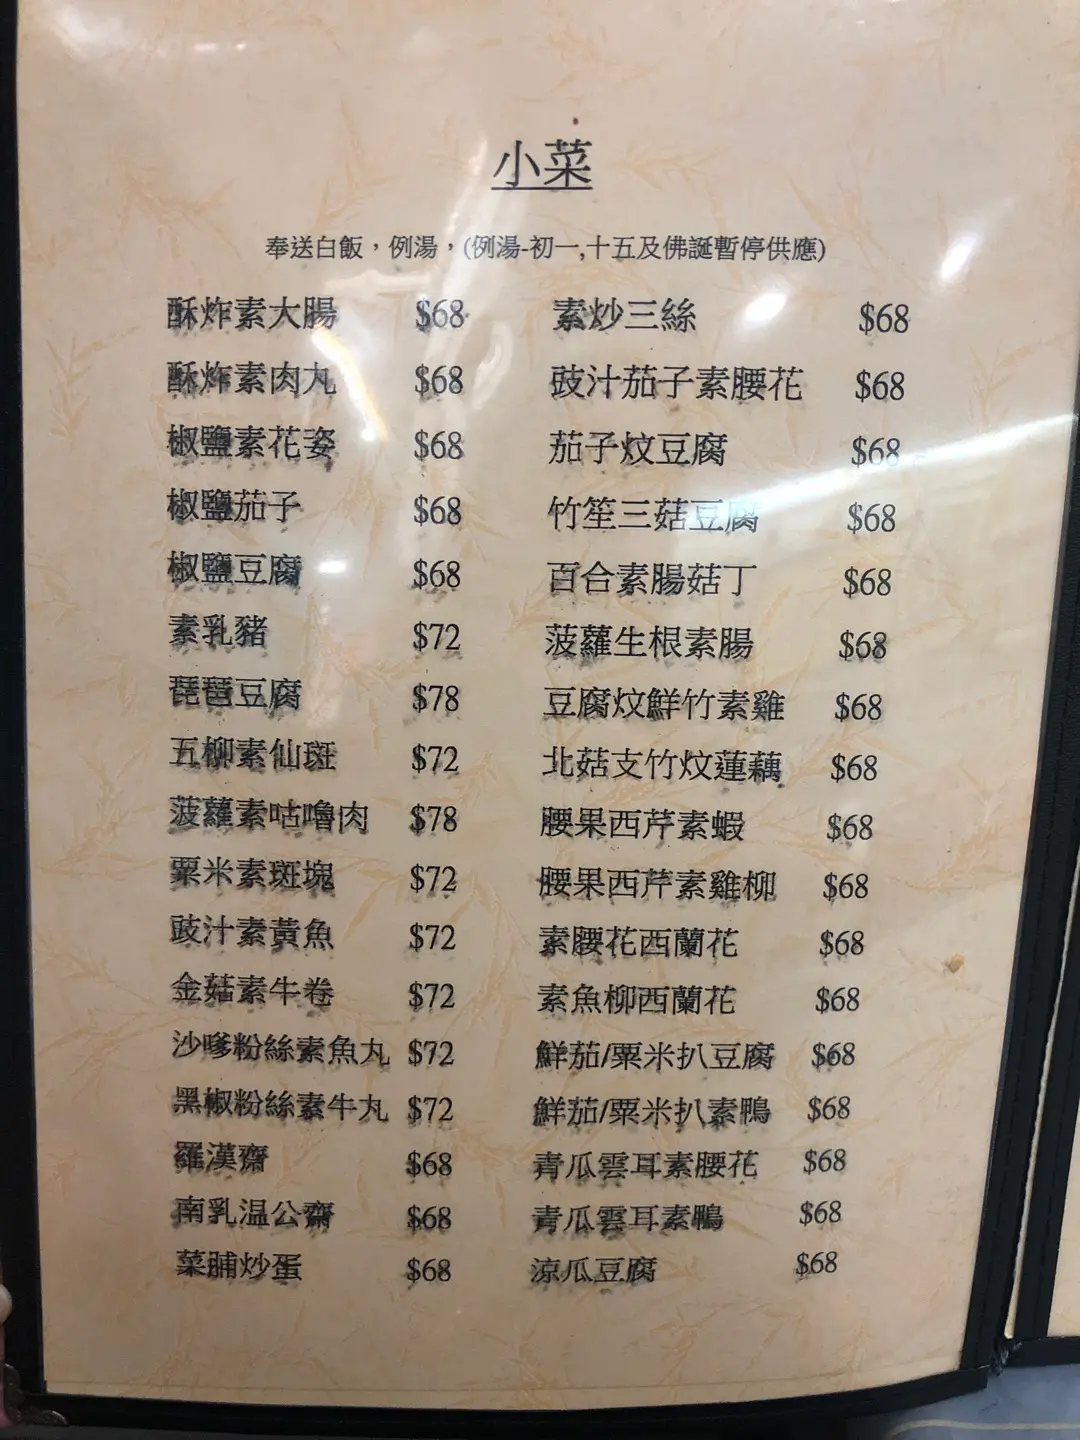 小菜
奉送白飯，例湯，(例湯-初一,十五及佛誕暫停供應)
酥炸素大腸 $68
酥炸素肉丸 $68
椒鹽素花姿 $68
椒鹽茄子 $68
椒鹽豆腐 $68
素乳豬 $72
琵琶豆腐 $78
五柳素仙斑 $72
菠蘿素咕嚕肉 $78
粟米素斑塊 $72
豉汁素黃魚 $72
金菇素牛卷 $72
沙嗲粉絲素魚丸 $72
黑椒粉絲素牛丸 $72
羅漢齋 $68
南乳温公齋 $68
菜脯炒蛋 $68
素炒三絲 $68
豉汁茄子素腰花 $68
茄子炆豆腐 $68
竹笙三菇豆腐 $68
百合素腸菇丁 $68
菠蘿生根素腸 $68
豆腐炆鮮竹素雞 $68
北菇支竹炆蓮藕 $68
腰果西芹素蝦 $68
腰果西芹素雞柳 $68
素腰花西蘭花 $68
素魚柳西蘭花 $68
鮮茄/粟米扒豆腐 $68
鮮茄/粟米扒素鴨 $68
青瓜雲耳素腰花 $68
青瓜雲耳素鴨 $68
涼瓜豆腐 $68